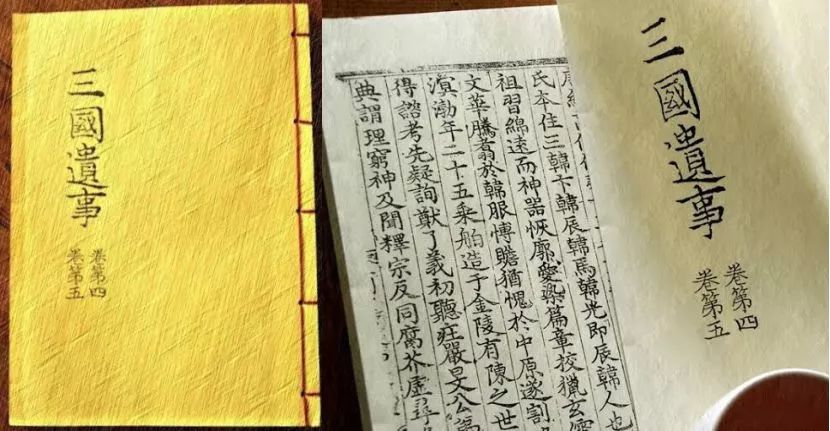 三國遺事
卷第四
卷第五
氏本住三韓卞韓辰韓馬韓光即辰韓人也
祖習綿遠而神器恢廓愛染篇章校獵玄儒
文華騰翥於韓服愽贍猶愧於中原遂割
溟渤年二十五乘舶造于金陵有陳之世
得諮考先疑詢猷了義初聽庄嚴旻公
典謂理窮神及聞釋宗反同腐芥虛尋
三國遺事
卷第四
卷第五